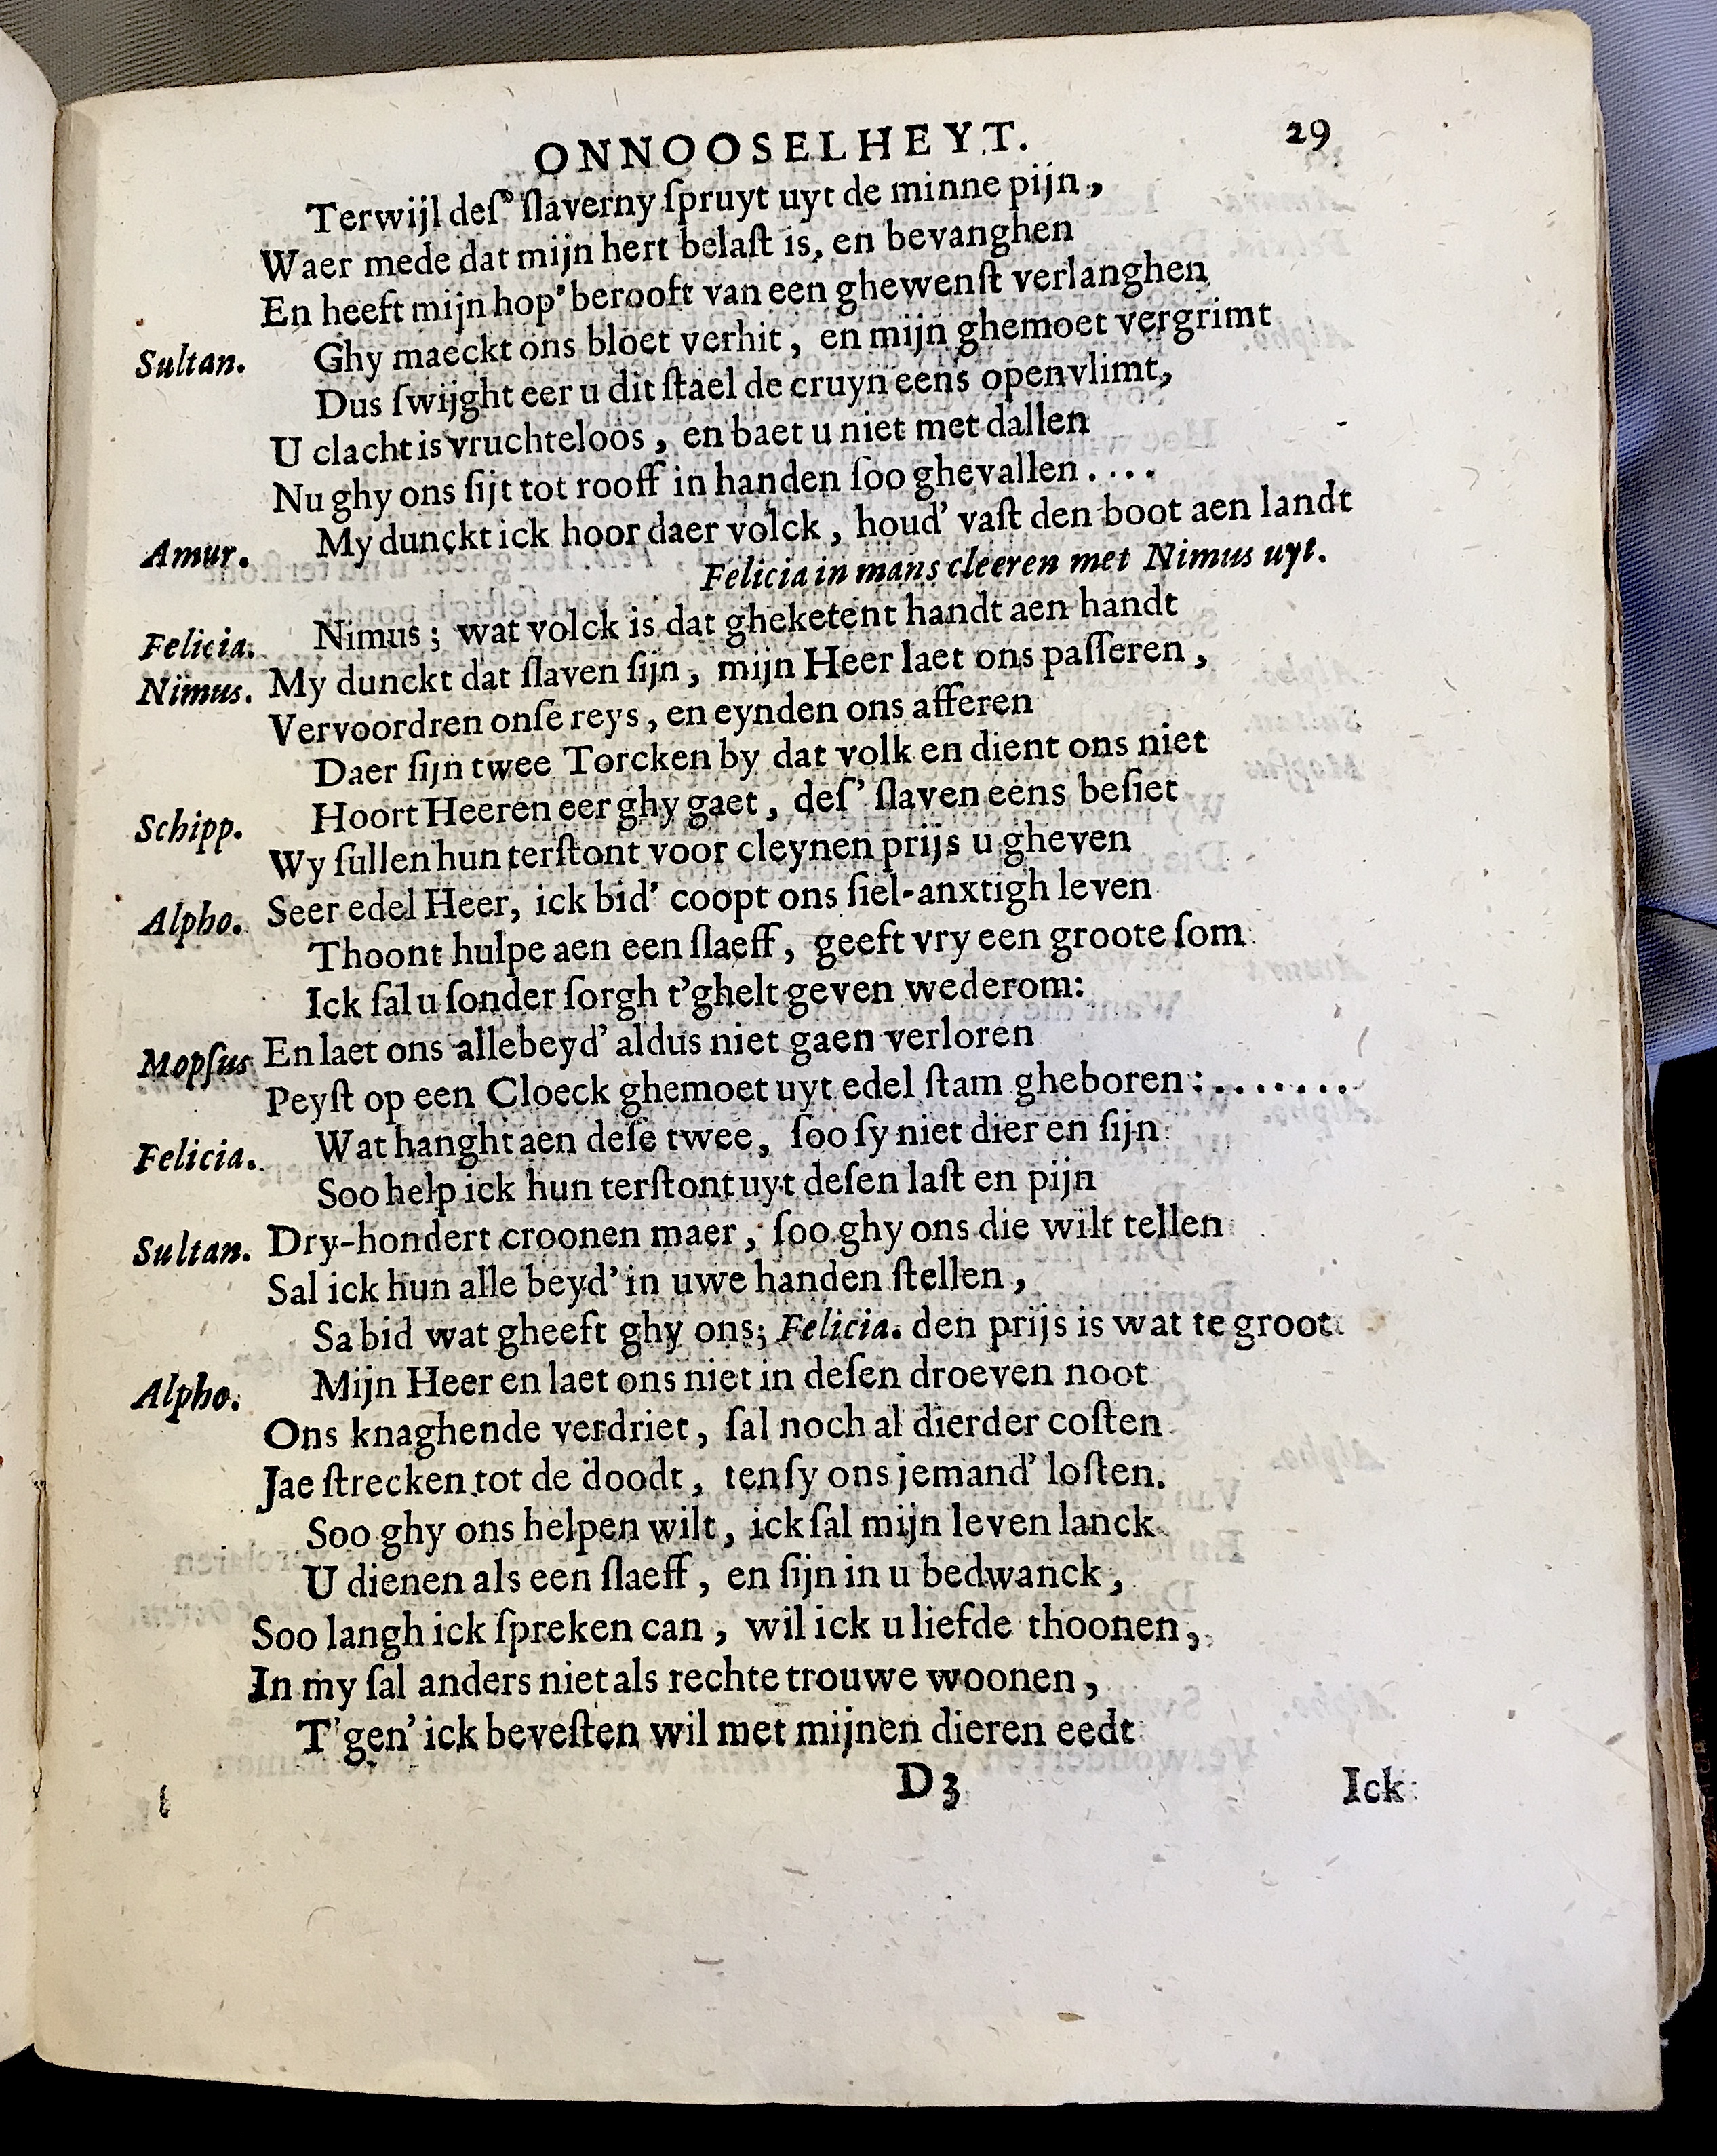 ONNOOSELHEYT. 29
Terwijl deſ’ ſlaverny ſpruyt uyt de minne pijn,
Waer mede dat mijn hert belaſt is, en bevanghen
En heeft mijn hop’ berooft van een ghewenſt verlanghen
Sultan. Ghy maeckt ons bloet verhit, en mijn ghemoet vergrimt
Dus ſwijght eer u dit ſtael de cruyn eens openvlimt,
U clacht is vruchteloos, en baet u niet met dallen
Nu ghy ons ſijt tot rooff in handen ſoo ghevallen....
Amur. My dunckt ick hoor daer volck, houd’ vaſt den boot aen landt
Felicia in mans cleeren met Nimus uyt.
Felicia. Nimus; wat volck is dat gheketent handt aen handt
Nimus. My dunckt dat ſlaven ſijn, mijn Heer laet ons paſſeren,
Vervoordren onſe reys, en eynden ons afferen
Daer ſijn twee Torcken by dat volk en dient ons niet
Schipp. Hoort Heeren eer ghy gaet, deſ’ ſlaven eens beſiet
Wy ſullen hun terſtont voor cleynen prijs u gheven
Alpho. Seer edel Heer, ick bid’ coopt ons ſiel-anxtigh leven
Thoont hulpe aen een ſlaeff, geeft vry een groote ſom
Ick ſal u ſonder ſorgh t’ghelt geven wederom:
Mopſus En laet ons allebeyd’ aldus niet gaen verloren
Peyſt op een Cloeck ghemoet uyt edel ſtam gheboren:.......
Felicia. Wat hanght aen deſe twee, ſoo ſy niet dier en ſijn
Soo help ick hun terſtont uyt deſen laſt en pijn
Sultan. Dry-hondert croonen maer, ſoo ghy ons die wilt tellen
Sal ick hun alle beyd’ in uwe handen ſtellen,
Sa bid wat gheeft ghy ons; Felicia. den prijs is wat te groot
Alpho. Mijn Heer en laet ons niet in deſen droeven noot
Ons knaghende verdriet, ſal noch al dierder coſten
Jae ſtrecken tot de doodt, ten ſy ons jemand’ loſten.
Soo ghy ons helpen wilt, ick ſal mijn leven lanck
U dienen als een ſlaeff, en ſijn in u bedwanck,
Soo langh ick ſpreken can, wil ick u liefde thoonen,
In my ſal anders niet als rechte trouwe woonen,
T’gen’ ick beveſten wil met mijnen dieren eedt
D3 Ick